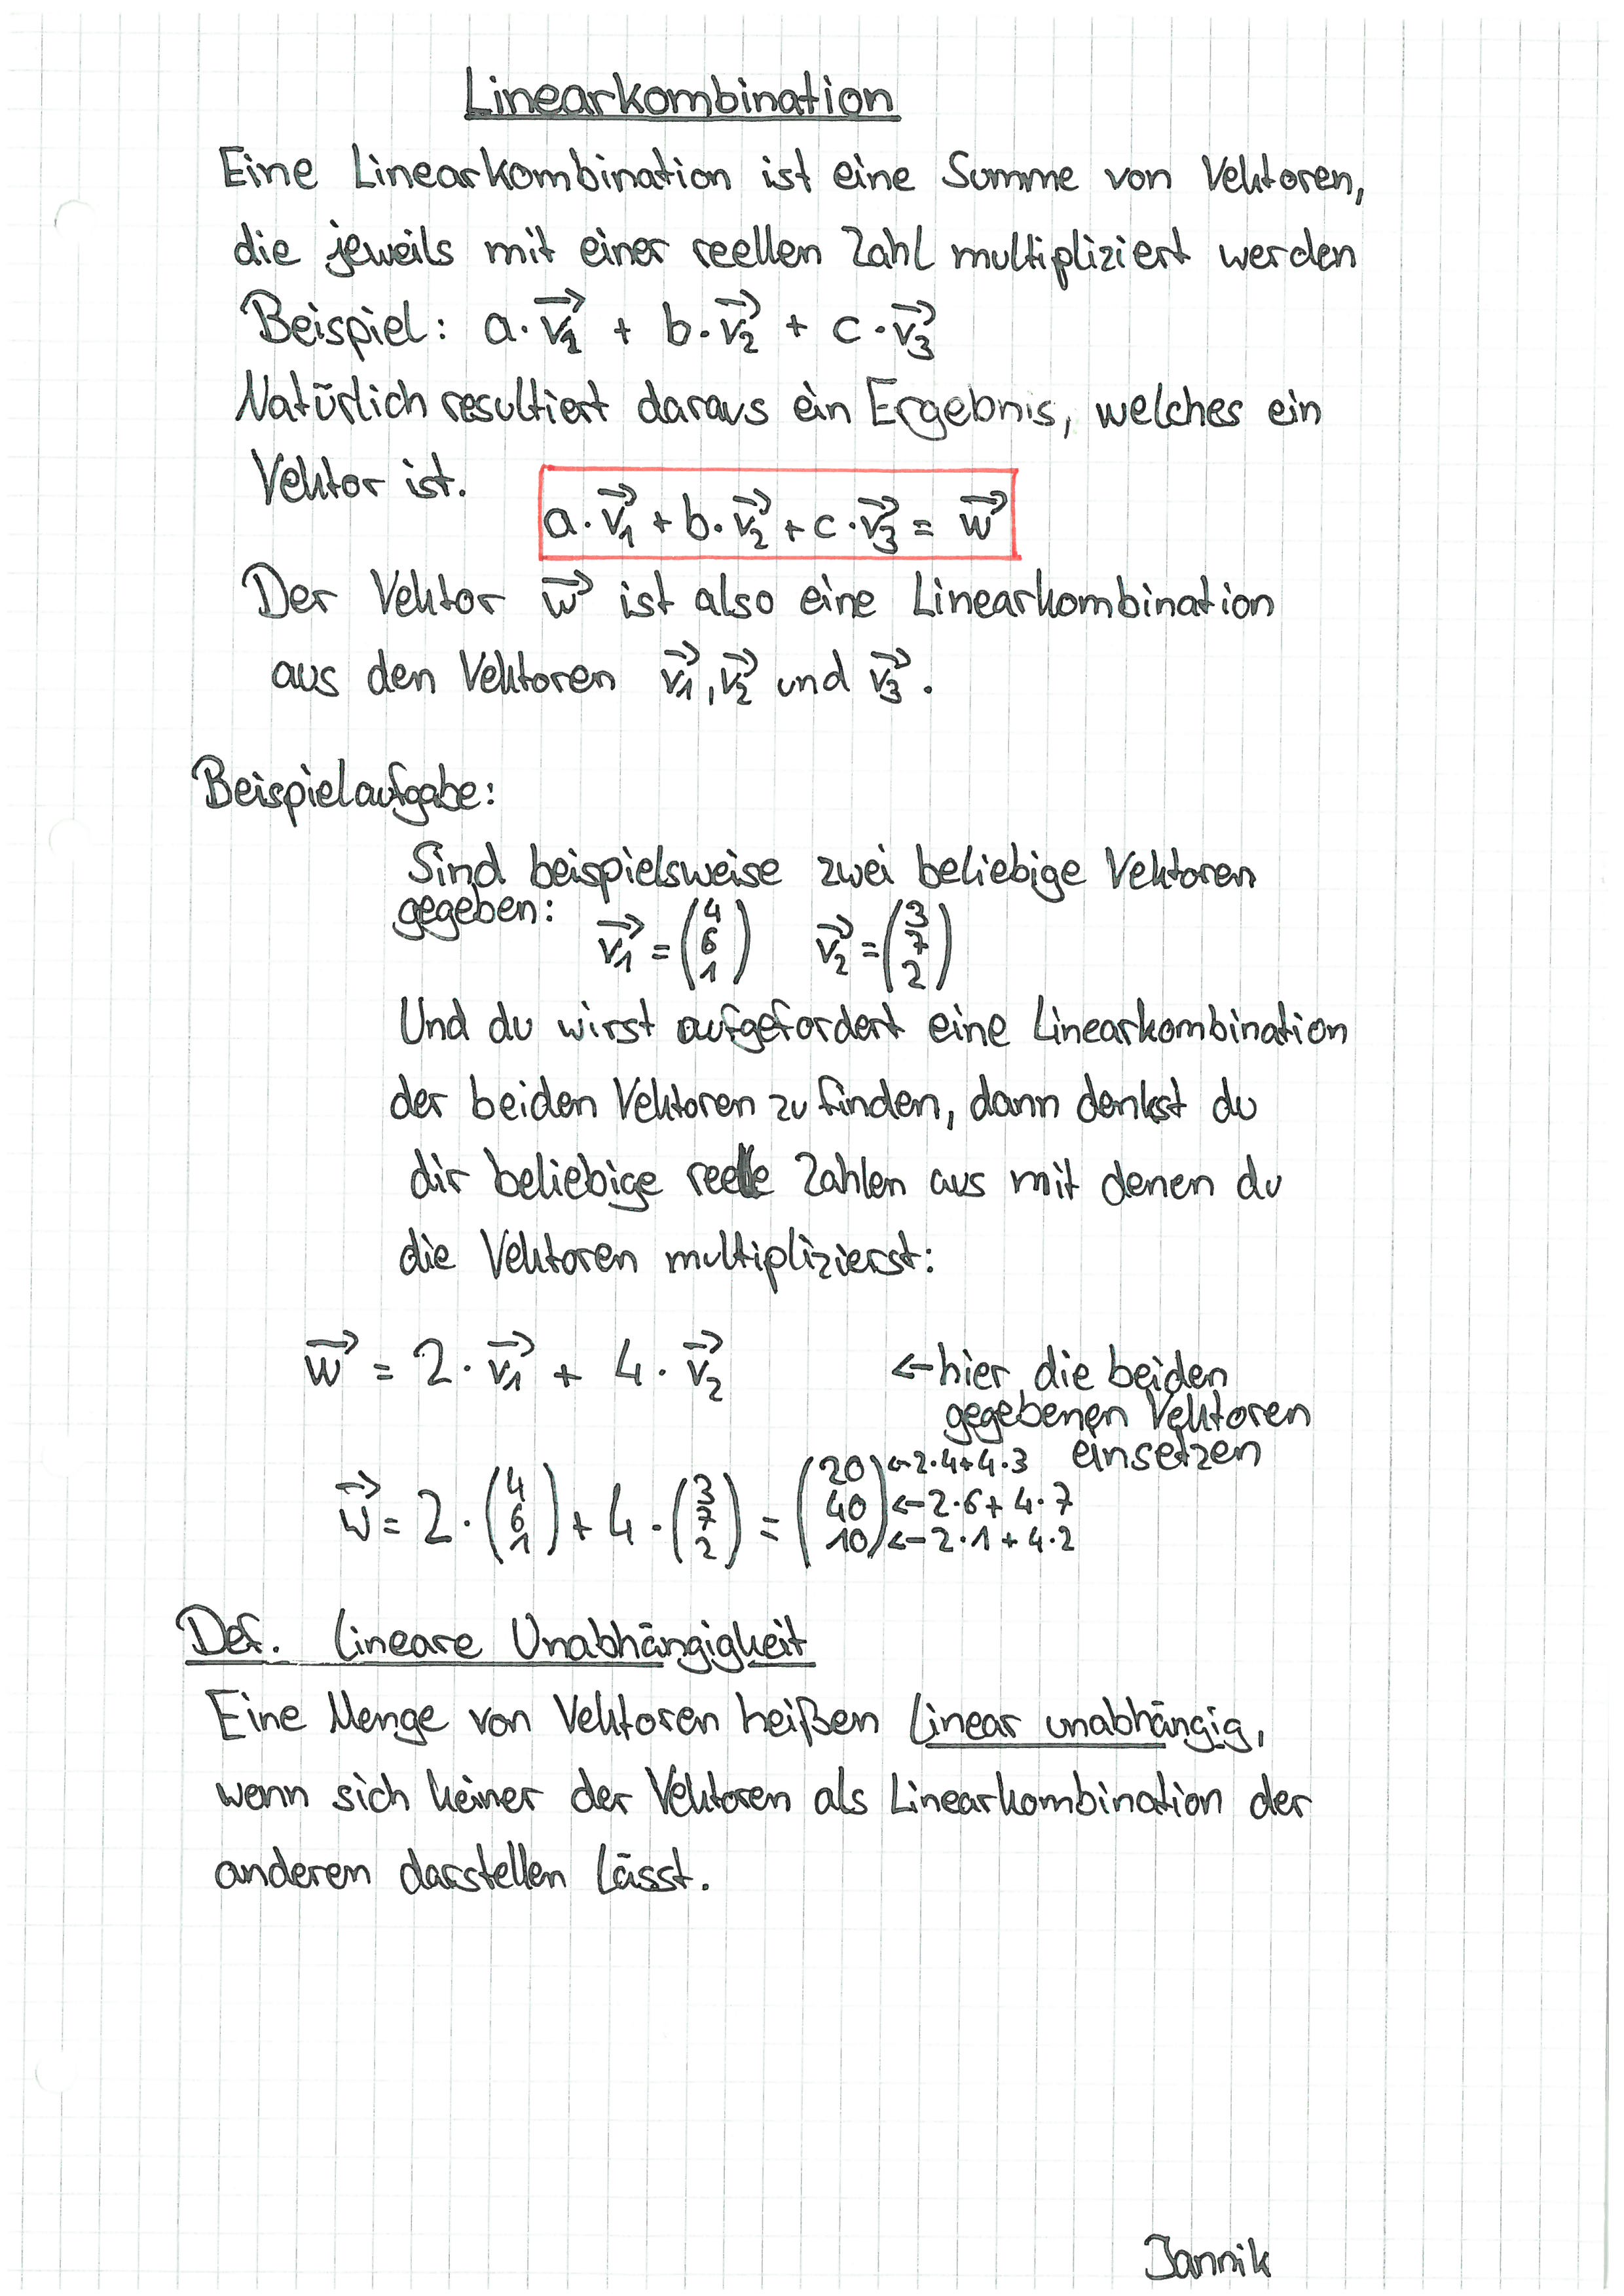 Linearkombination
Eine Linearkombination ist eine Summe von Vektoren,
die jeweils mit einer reellen Zahl multipliziert werden
Beispiel: a·v₁⃗ + b·v₂⃗ + c·v₃⃗
Natürlich resultiert daraus ein Ergebnis, welches ein
Vektor ist.
a·v₁⃗ + b·v₂⃗ + c·v₃⃗ = w⃗
Der Vektor w⃗ ist also eine Linearkombination
aus den Vektoren v₁⃗, v₂⃗ und v₃⃗.
Beispielaufgabe:
Sind beispielsweise zwei beliebige Vektoren
gegeben: v₁⃗ = (4 6 1) v₂⃗ = (3 7 2)
Und du wirst aufgefordert eine Linearkombination
der beiden Vektoren zu finden, dann denkst du
dir beliebige reelle Zahlen aus mit denen du
die Vektoren multiplizierst:
w⃗ = 2·v₁⃗ + 4·v₂⃗ ← hier die beiden
gegebenen Vektoren
einsetzen
w⃗ = 2·(4 6 1) + 4·(3 7 2) = (20 40 10)
← 2·4+4·3
← 2·6+4·7
← 2·1+4·2
Def. Lineare Unabhängigkeit
Eine Menge von Vektoren heißen linear unabhängig,
wenn sich keiner der Vektoren als Linearkombination der
anderen darstellen lässt.
Jannik